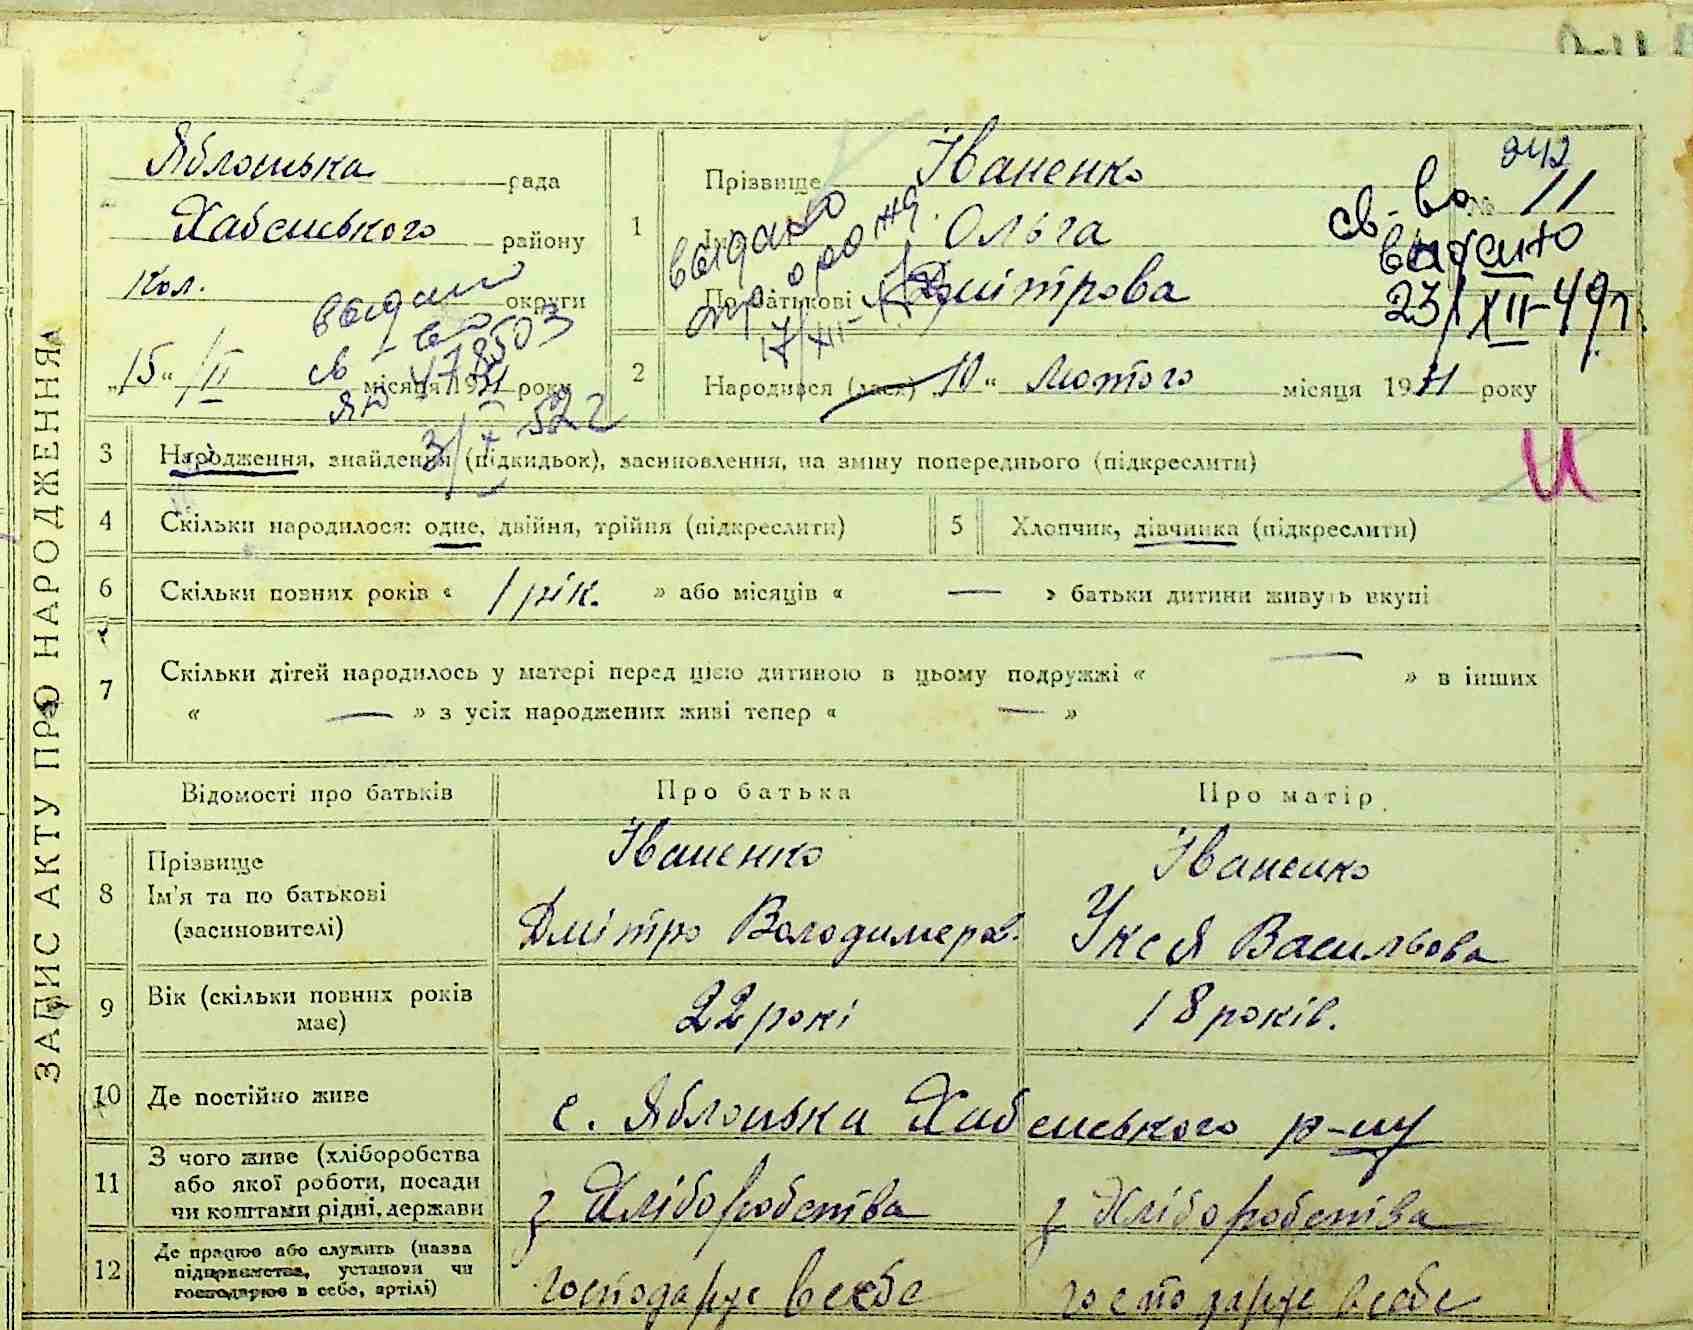 ЗАПИС АКТУ ПРО НАРОДЖЕННЯ
Яблонська рада
Хабенського району
Кол. округи
„15“ / II місяця 1931 року
видано
св-во
178503
3/X-52 г
1
Прізвище Іваненко
Ім'я Ольга
По батькові Дмітрова
видано
17/XII-
242
№ 11
св-во
видано
23/XII-49р
2
Народився (лася) „10“ лютого місяця 1931 року
3
Народження, знайдення (підкидьок), засиновлення, на зміну попереднього (підкреслити)
И
4
Скільки народилося: одне, двійня, трійня (підкреслити)
5
Хлопчик, дівчинка (підкреслити)
6
Скільки повних років « 1 рік. » або місяців « — » батьки дитини живуть вкупі
7
Скільки дітей народилось у матері перед цією дитиною в цьому подружжі « — » в інших
« — » з усіх народжених живі тепер « — »
Відомості про батьків
Про батька
Про матір
8
Прізвище
Ім'я та по батькові
(засиновителі)
Іваненко
Дмітро Володимеров.
Іваненко
Уксія Васильова
9
Вік (скільки повних років
має)
22 рокі
18 років.
10
Де постійно живе
с. Яблонька Хабенського р-ну
11
З чого живе (хліборобства
або якої роботи, посади
чи коштами рідні, держави
з Хліборобства
з Хліборобства
12
Де працює або служить (назва
підприємства, установи чи
господарює в себе, артілі)
господарує в себе
господарує в себе